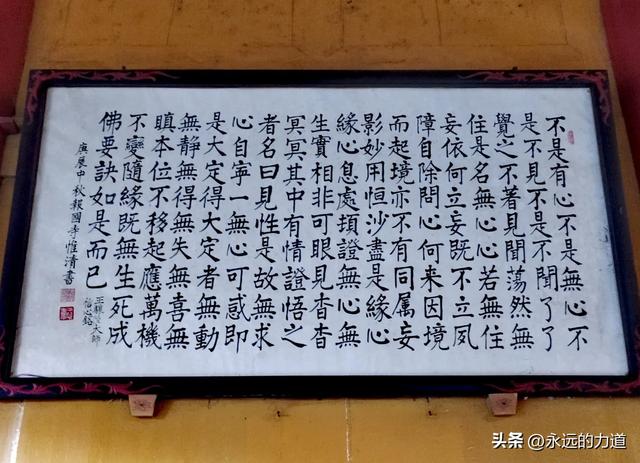 不是有心不是無心不
是不見不是不聞了了
覺之不著見聞蕩然無
住是名無心心若無住
妄依何立妄既不立夙
障自除問心何来因境
而起境亦不有同属妄
影妙用恒沙盡是緣心
緣心息處頓證無心無
生實相非可眼見杳杳
冥冥其中有情證悟之
者名曰見性是故無求
心自寧一無心可感即
是大定得大定者無動
無静無得無失無喜無
瞋本位不移起應萬機
不變隨緣既無生死成
佛要訣如是而已
王驤陸大師
悟心銘
庚辰中秋報國寺惟清書
头条 @永远的力道